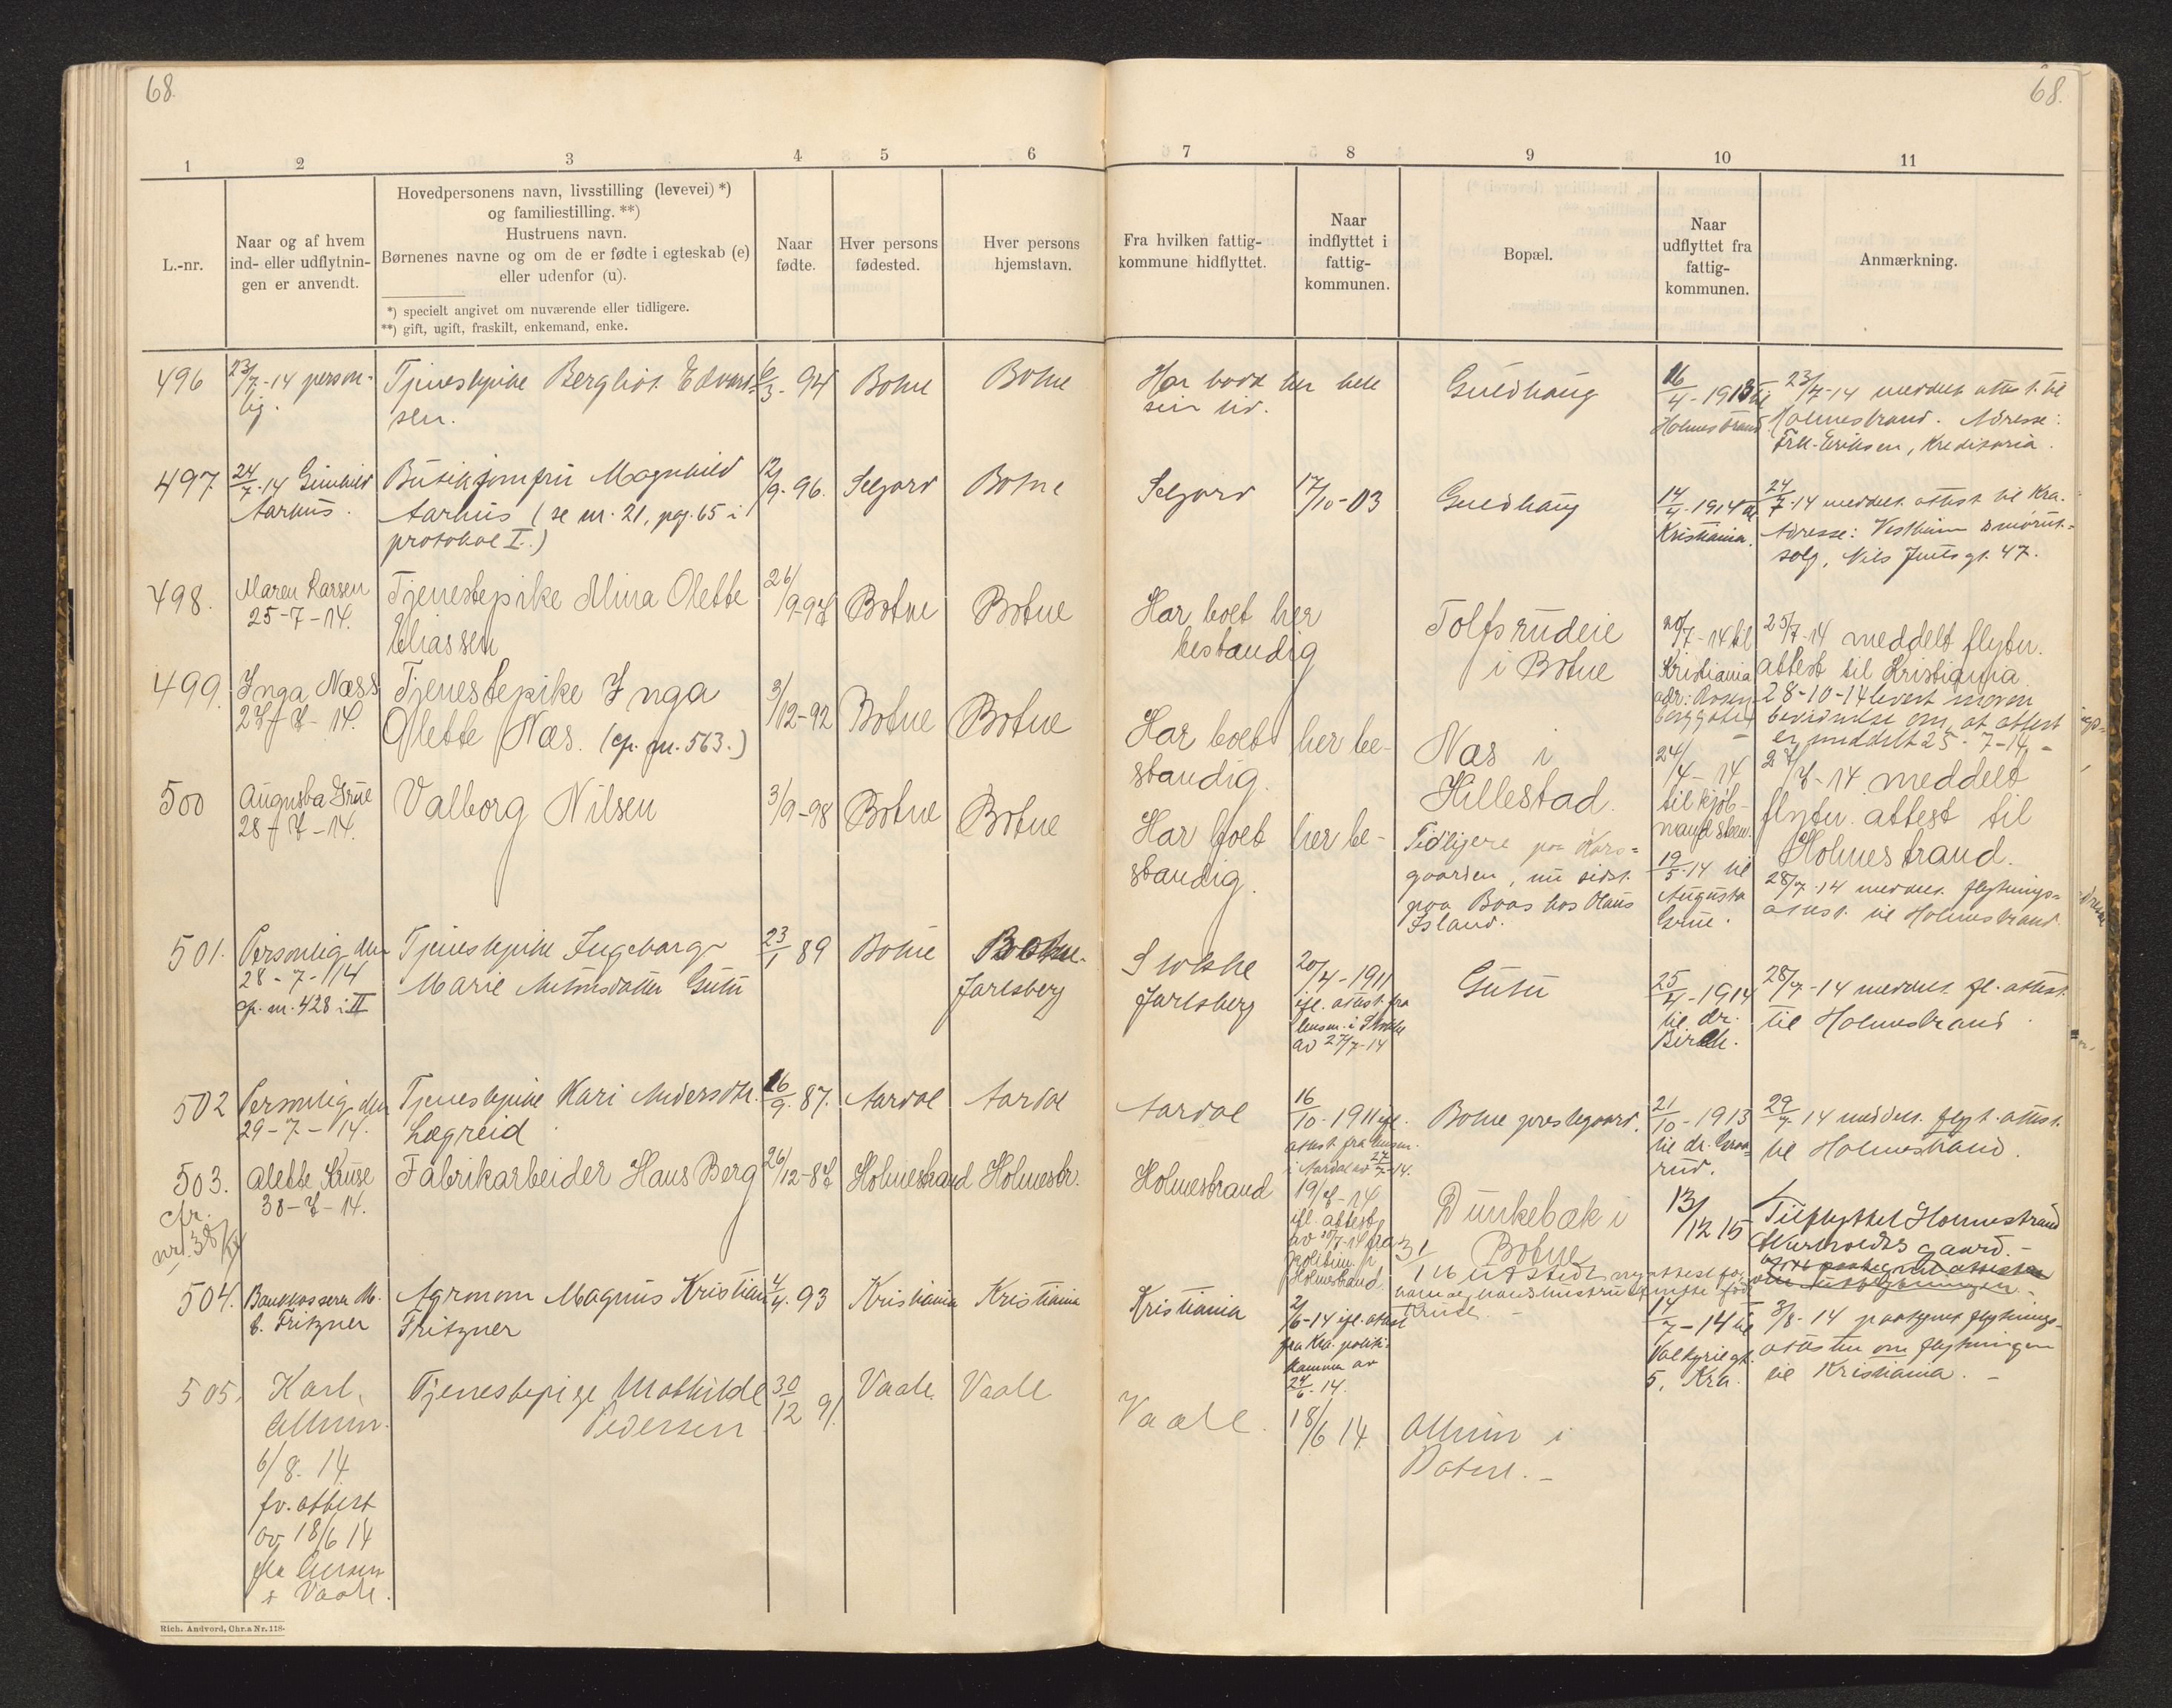 68.
68.
1 2 3 4 5 6 7 8 9 10 11
L.-nr.
Naar og af hvem
ind- eller udflytnin-
gen er anvendt.
Hovedpersonens navn, livsstilling (levevei) *)
og familiestilling. **)
Hustruens navn.
Børnenes navne og om de er fødte i egteskab (e)
eller udenfor (u).
*) specielt angivet om nuværende eller tidligere.
**) gift, ugift, fraskilt, enkemand, enke.
Naar
fødte.
Hver persons
fødested.
Hver persons
hjemstavn.
Fra hvilken fattig-
kommune hidflyttet.
Naar
indflyttet i
fattig-
kommunen.
Bopæl.
Naar
udflyttet fra
fattig-
kommunen.
Anmærkning.
496
23/7-14 person-
lig.
Tjenestepike Bergliot Edvard-
sen.
6/3-94
Botne
Botne
Har bodd her hele
sin tid.
Guldhaug
16/4-1913 til
Holmestrand
23/7-14 meddelt attest til
Holmestrand. Adresse:
Frk. Eriksen, Kreditoria.
497
24/7-14 Gunhild
Aarhus.
Butikjomfru Magnhild
Aarhus (se nr. 21, pag. 65 i
protokol I.)
12/9-96.
Seljord
Botne
Seljord
17/10-03
Guldhaug
14/4-1914 til
Kristiania.
24/7-14 meddelt attest til Kra.
Adresse: Vestheim smørut-
salg, Nils Juels gt. 47.
498.
Maren Larsen
25-7-14.
Tjenestepike Alina Olette
Eliassen
26/9-97
Botne
Botne
Har boet her
bestandig
Tolfsrudeie
i Botne
20/7-14 til
Kristiania
adr: Rosen-
borggaten
25/7-14 meddelt flytn.
attest til Kristiania.
28-10-14 levert moren
bevidnelse om, at attest
er meddelt 25-7-14.-
499.
Inga Næss
27-7-14.
Tjenestepike Inga
Olette Næs. (cp. nr. 563.)
3/12-92
Botne
Botne
Har boet her be-
standig.
Næs i
Hillestad.
24/4-14
til kjøb-
mand
27/7-14 meddelt
flytn. attest til
Holmestrand.
500
Augusta Grue
28-7-14.
Valborg Nilsen
3/9-98
Botne
Botne
Har boet her be-
standig.
Tidligere paa Kors-
gaarden, nu sidst
paa Boas hos Olaus
Island.
19/5-14 til
Augusta
Grue.
28/7-14 meddelt flytnings-
attest til Holmestrand.
501.
Personlig den
28-7-14
cp. nr. 428 i II
Tjenestepike Ingeborg
Marie Antonsdatter Gutu
23/1 89
Botne
Botne.
Jarlsberg
Stokke
Jarlsberg
20/4-1911
ifl. attest fra
lensm. i Stokke
av 27/7-14
Gutu
25/4-1914
til dr.
Birch.
28/7-14 meddelt fl. attest
til Holmestrand.
502
Personlig den
29-7-14.
Tjenestepike Kari Andersdtr.
Lægreid
16/9-87.
Aardal
Aardal
Aardal
16/10-1911 ifl.
attest fra lensm.
i Aardal av 27/7-14.
Botne prestegaard.
21/10-1913
til dr. Graa-
rud.
29/7-14 meddelt flyt. attest
til Holmestrand.
503.
cfr.
nr. 38/IV
Alette Kruse
30-7-14.
Fabrikarbeider Hans Berg
26/12-87
Holmestrand
Holmestr.
Holmestrand
19/7-14
ifl. attest
av 30/7-14 fra
politim. i
Holmestrand.
Dunkebæk i
Botne
3/1 16 utstedt ny attest for
ham og hans hustru født
Kruse. -
13/12 15
Tilflyttet Holmestrand
gaard. -
504.
Bankkasserer M.
b. Fritzner
Agronom Magnus Kristian
Fritzner
4/4-93
Kristiania
Kristiania
Kristiania
2/6-14 ifl. attest
fra Kra. politi-
kammer av
24/6-14.
14/7-14 til
Valkyriegt.
5, Kra.
3/8-14 paategnet flytnings-
attesten om flytningen
til Kristiania. -
505.
Karl
Allum.
6/8. 14
fv. attest
av 18/6 14
fra lensm
i Vaale.
Tjenestepige Mathilde
Pedersen
30/12 91
Vaale.
Vaale
Vaale.
18/6 14
Allum i
Botne. -
Rich. Andvord, Chr.a Nr. 118.